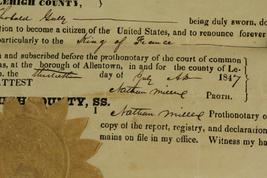 LEHIGH COUNTY,
being duly sworn, do
tion to become a citizen of the United States, and to renounce forever
particularly to the King of France
n and subscribed before the prothonotary of the court of common
as, at the borough of Allentown, in and for the county of Le-
the thirtieth day of July A.D. 1847
TTEST
Nathan Miller PROTH.
GH COUNTY, SS.
I Nathan Miller Prothonotary o
copy of the report, registry, and declaration
mains on file in my office. Witness my ha